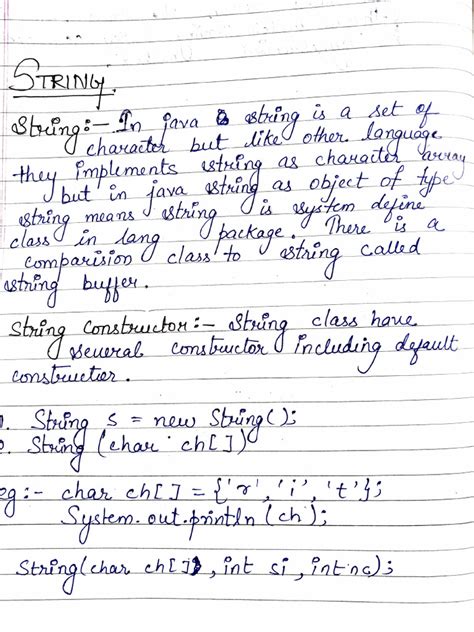 STRING
String:- In java string is a set of
character but like other language
they implements string as character array
but in java string as object of type
string means string is system define
class in lang package. There is a
comparision class to string called
string buffer.
String Constructor:- String class have
several constructor including default
constructior.
1. String s = new String();
2. String (char ch[])
eg:- char ch[] = {'r', 'i', 't'};
System.out.println (ch);
String(char ch[], int si, int nc);